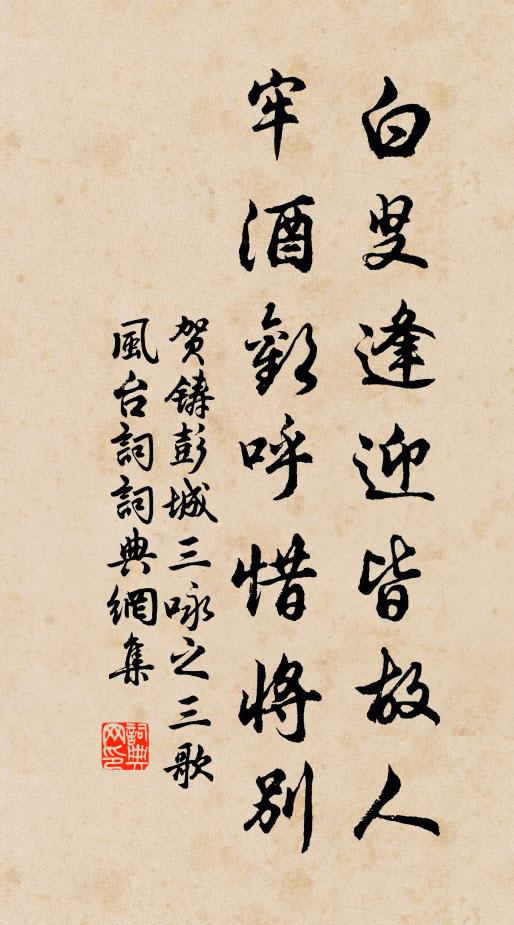 白叟逢迎皆故人
牢酒歡呼惜將别
贺鑄彭城三咏之三歌
風台詞詞典網集
詞典
网印